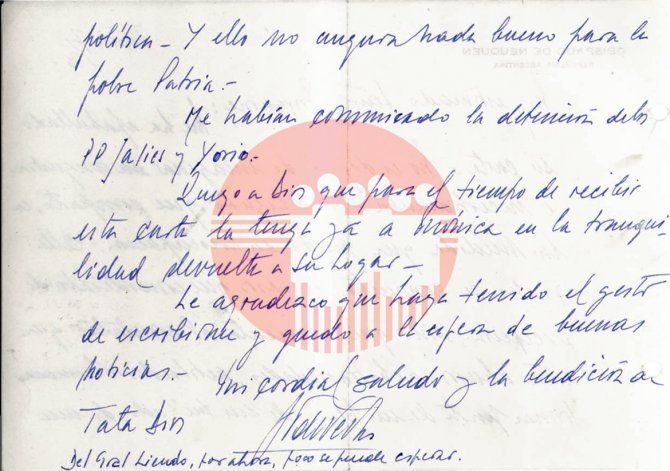 política - Y ello no augura nada bueno para la
pobre Patria.-
Me habían comunicado la detención de los
PP Jalics y Yorio.-
Ruego a Dios que para el tiempo de recibir
esta carta la tenga ya a Mónica en la tranqui-
lidad devuelta a su hogar -
Le agradezco que haya tenido el gesto
de escribirme y quedo a la espera de buenas
noticias.- Mi cordial saludo y la bendición de
Tata Dios
Del Gral Liendo, por ahora, poco se puede esperar.
OBISPADO DE NEUQUEN